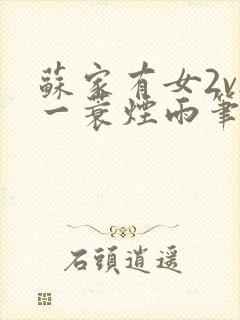 蘇家有女2v
一蓑煙雨筆
石頭逍遥